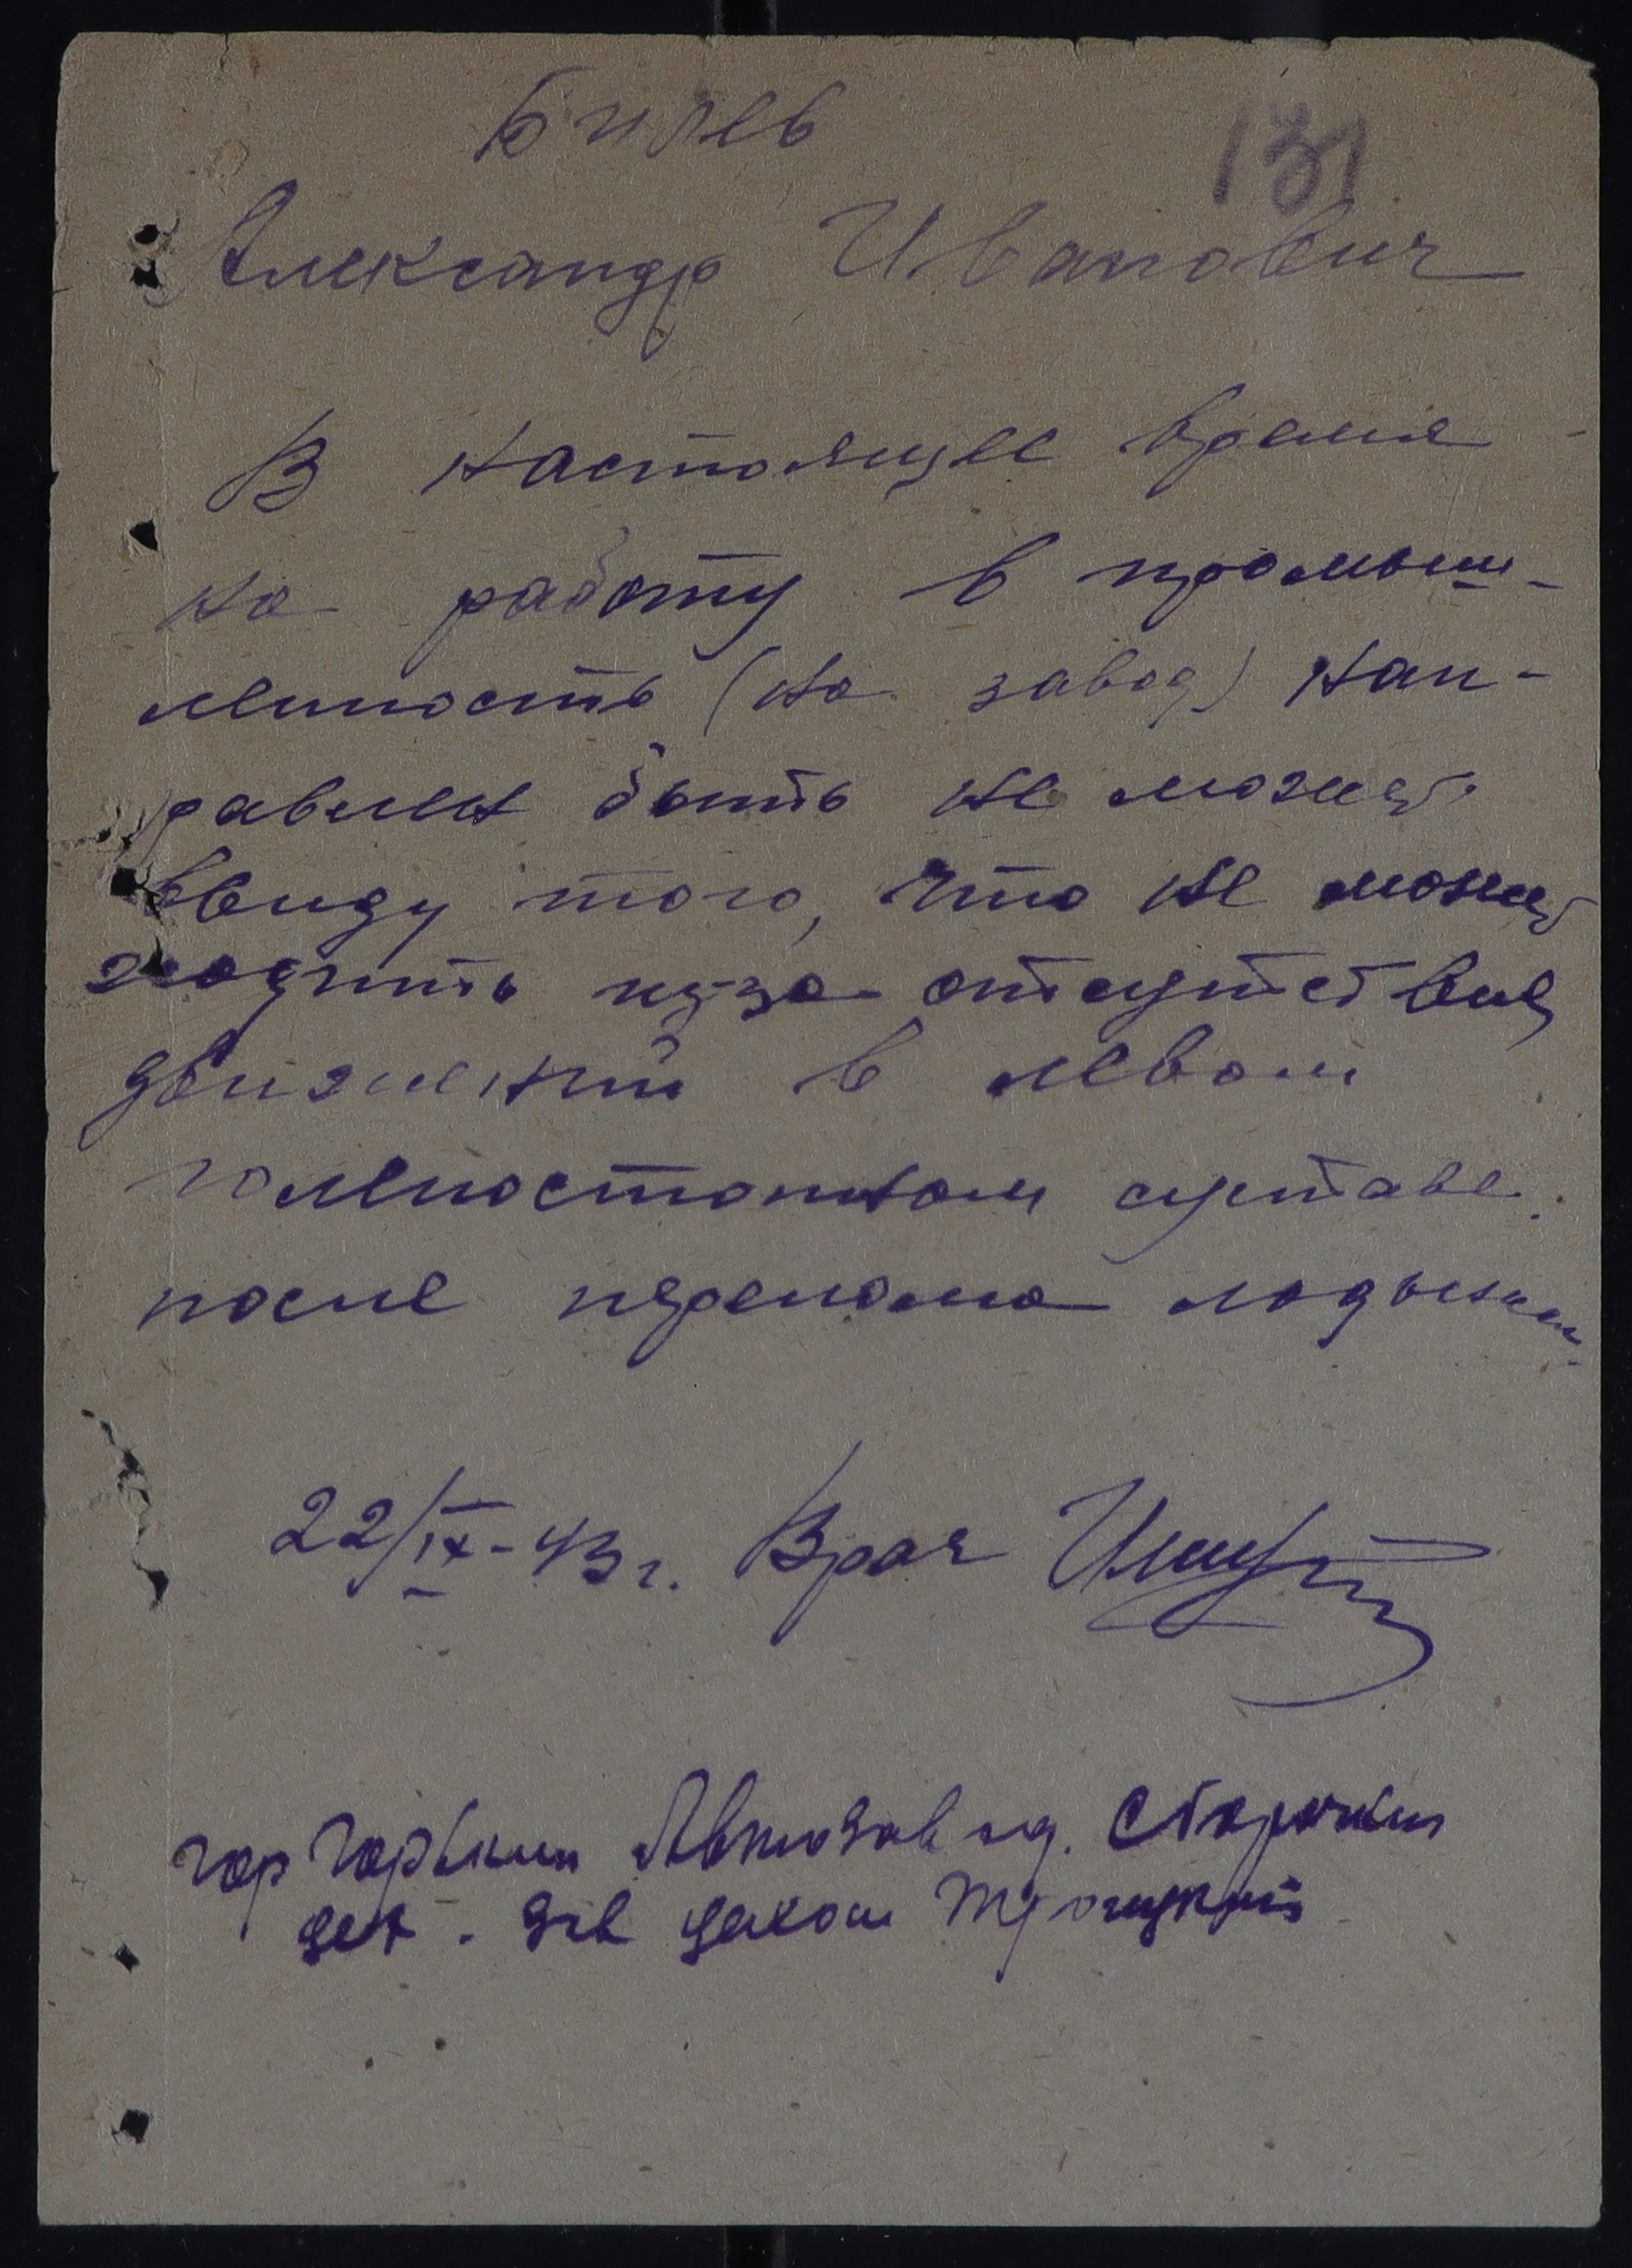 Билев
131
Александр Иванович
В настоящее время
на работу в промыш-
леность (на завод) нап-
равлен быть не может
ввиду того, что не может
ходить из-за отсутствия
движений в левом
голеностопном суставе
после перелома лодыжки.
22/IX-43 г. Врач
гор Горький Автозавод.